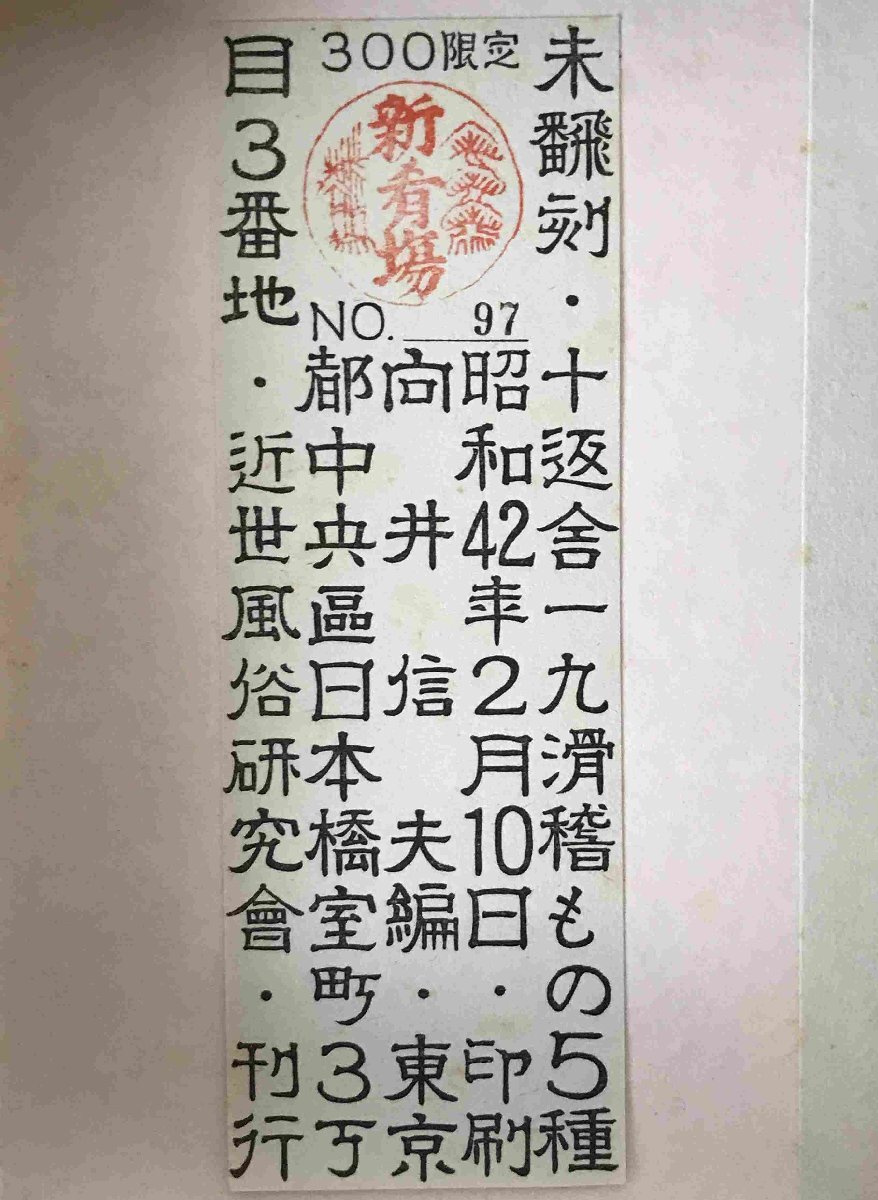 未飜刻・十返舎一九滑稽もの5種
300限定
新肴場
NO. 97
昭和42年2月10日・印刷
向井信夫編・東京
都中央區日本橋室町3丁
目3番地・近世風俗研究會・刊行